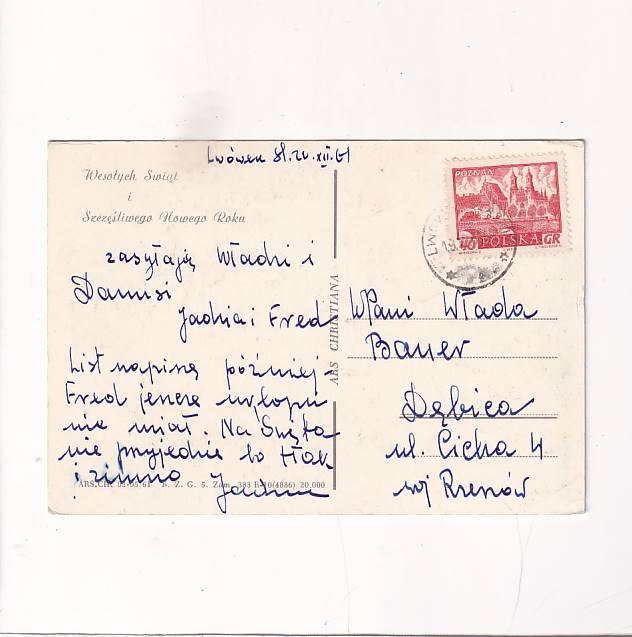 Lwówek Śl. 20.XII.61
Wesołych Świąt
i
Szczęśliwego Nowego Roku
zasyłają Władzi i
Danusi
Jadzia i Fred
List napiszą później -
Fred jeszcze urlopu
nie miał. Na Święta
nie przyjedzie bo tłok
i zimno
ARS.CHR. 61 Z. G. 5. Zam. 383 20.000
ARS CHRISTIANA
POZNAŃ
40 POLSKA GR
LWÓ
WPani Włada
Bauer
Dębica
ul. Cicha 4
woj Rzeszów